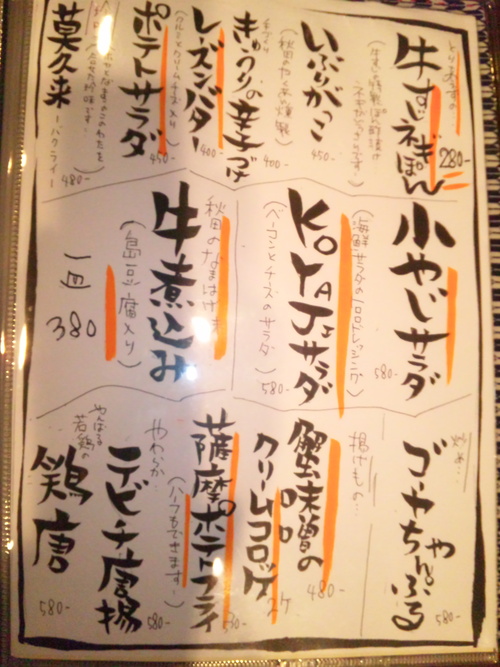 とりあえずの…
牛すじネギぽん
280-
いぶりがっこ
(秋田のたくあん燻製)
450-
きゅうりの辛子づけ
400-
レーズンバター
(クルミとクリームチーズ入り)
400-
ポテトサラダ
450-
莫久来
-バクライ-
480-
小やじサラダ
(海鮮サラダの〇〇ドレッシング)
580-
KoYAJiサラダ
(ベーコンとチーズのサラダ)
580-
秋田のなまはげ
牛煮込み
(島豆腐入り)
一皿
380
炒め…
ゴーヤちゃんぷる
580-
揚げもの…
蟹味噌の
クリームコロッケ
2ケ
480-
薩摩ポテトフライ
(ハーフもできます-)
530-
やわらか
テビチ唐揚
580-
やんばる
若鶏の
鶏唐
580-